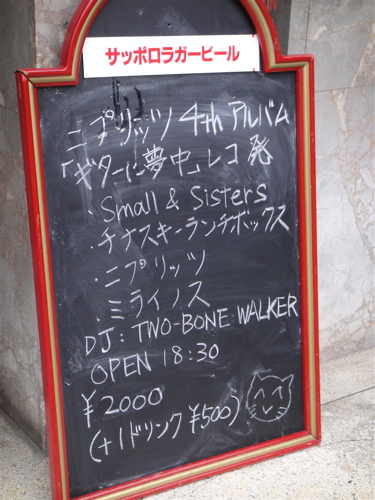 サッポロラガービール
ニプリッツ 4th アルバム
「ギターに夢中」レコ発
・Small & Sisters
・チナスキーランチボックス
・ニプリッツ
・ミライノス
DJ: TWO-BONE WALKER
OPEN 18:30
¥2000
(+1ドリンク ¥500)